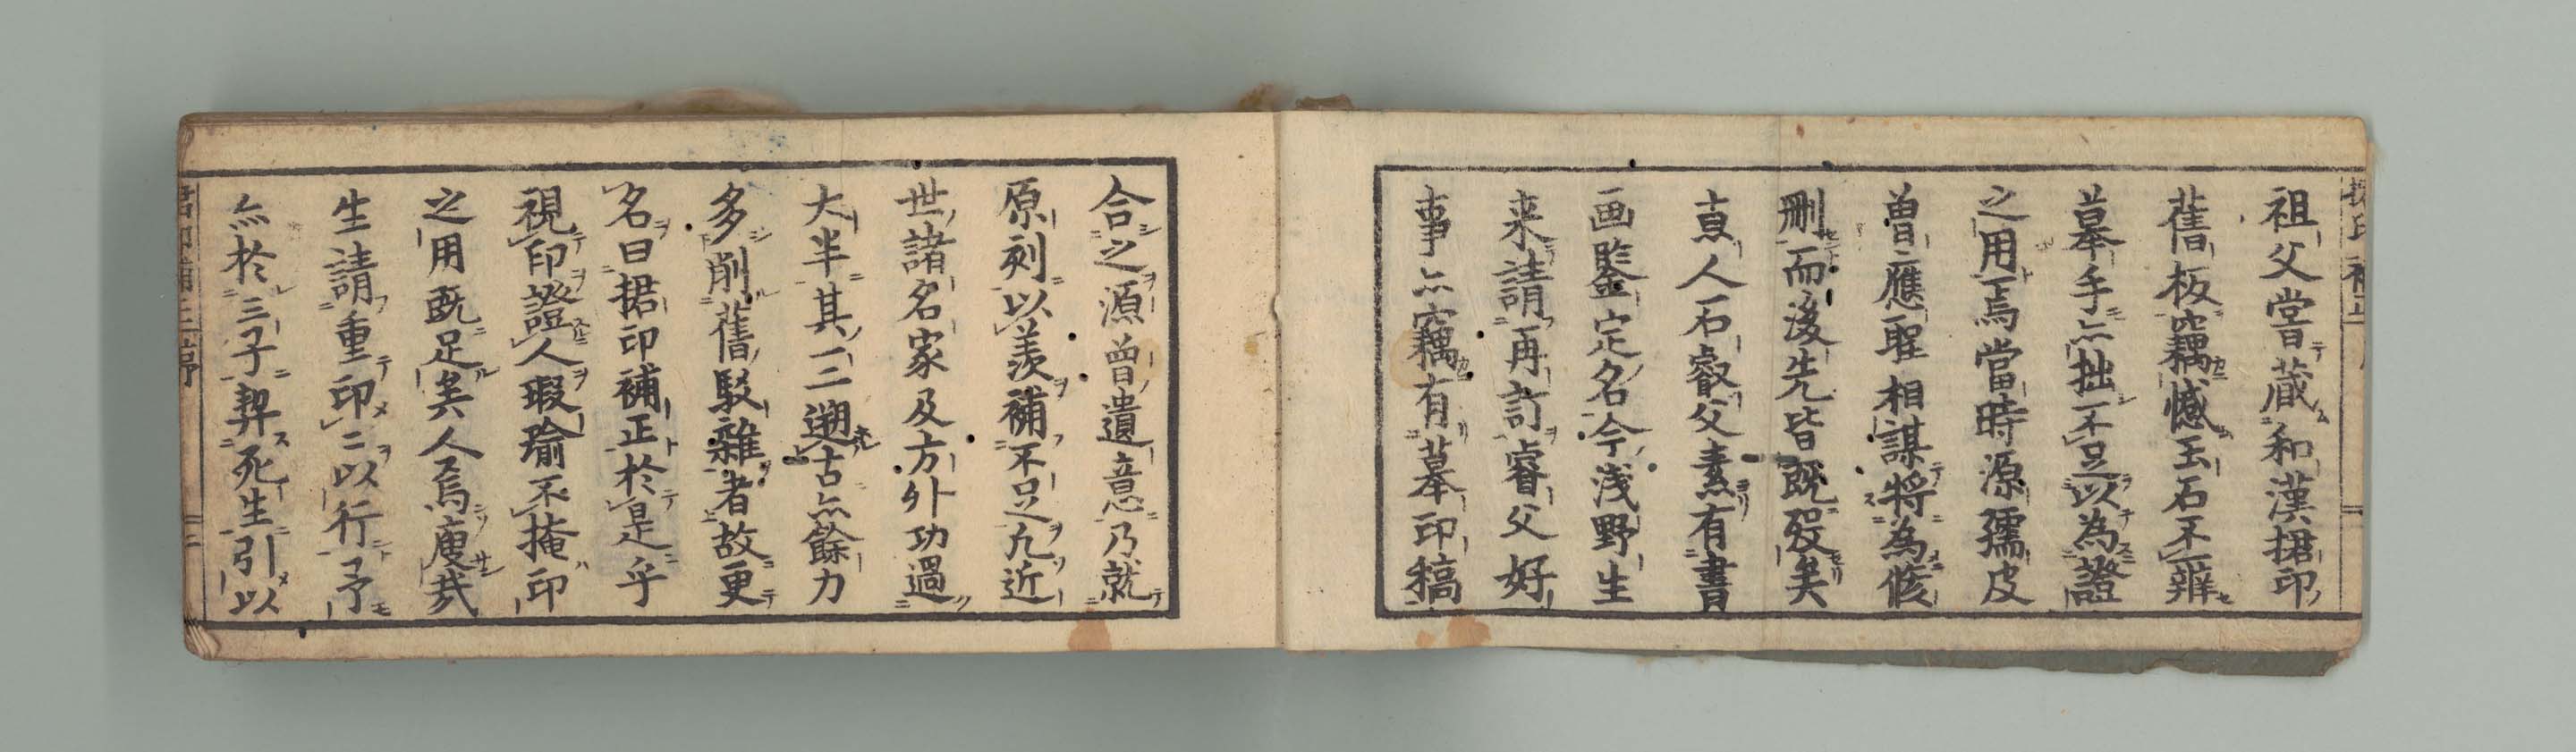 祖父嘗蔵和漢捃印
舊板竊憾玉石不辨
摹手亦拙不足以為證
之用焉當時源孺皮
曽應聖相謀将為
刪而後先皆既歿矣
人石叡父素有書
画鑒定名今浅野生
来請再訂睿父好
事亦竊有摹印稿
合之源曽遺意乃就
原刻以羨補不足九近
世諸名家及方外功過
大半其一二遡古亦餘力
多削舊駁雜者故更
名曰捃印補正於是乎
視印證人瑕瑜不掩印
之用既足矣人焉廋哉
生請重印二以行予
亦於三子契死生引以